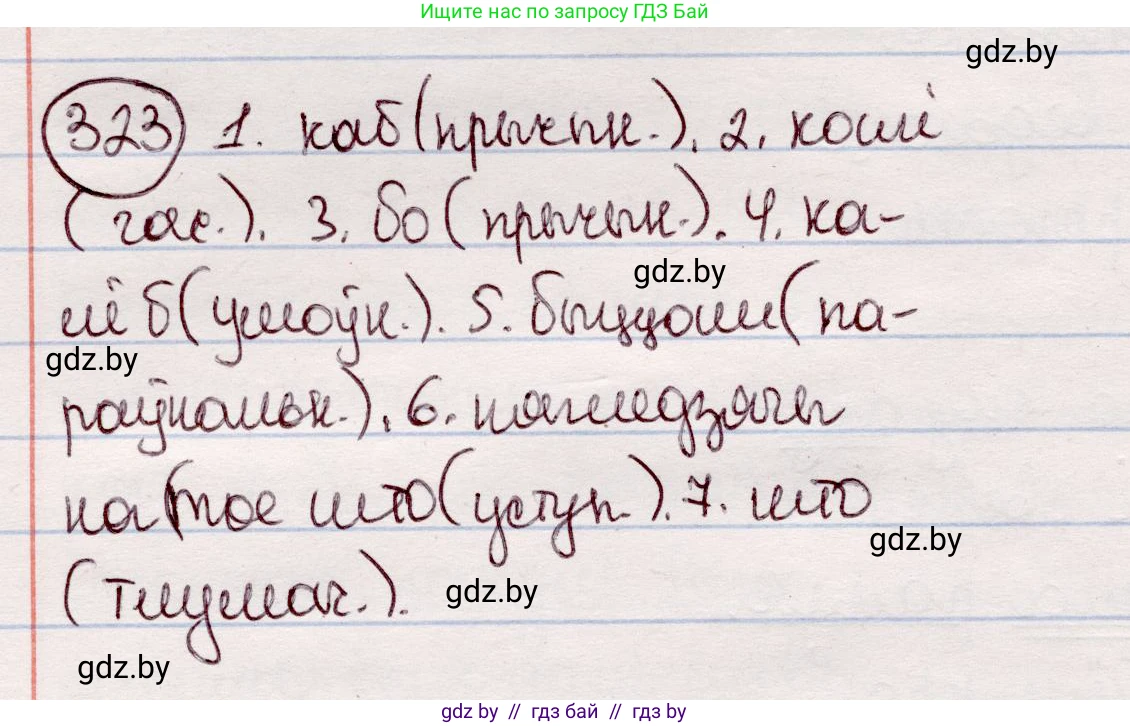 Ищите нас по запросу ГДЗ Бай
gdz.by
323 1. каб (прычын.). 2. калі
(час.). 3. бо (прычын.). 4. ка-
gdz.by
лі б (умоўн.). 5. быццам (па-
gdz.by
раўнальн.). 6. нягледзячы
на тое што (уступ.). 7. што
gdz.by
(тлумач.).
gdz.by
gdz.by
gdz.by // гдз бай // gdz.by